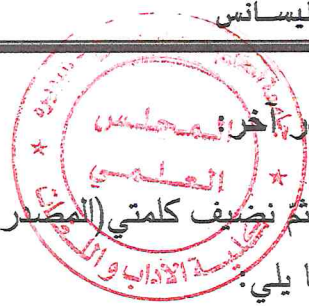 ليسانس
ر آخر:
المجلس
العلمي
ثمّ نضيف كلمتي (المصدر
ا يلي:
كلية الآداب واللغات